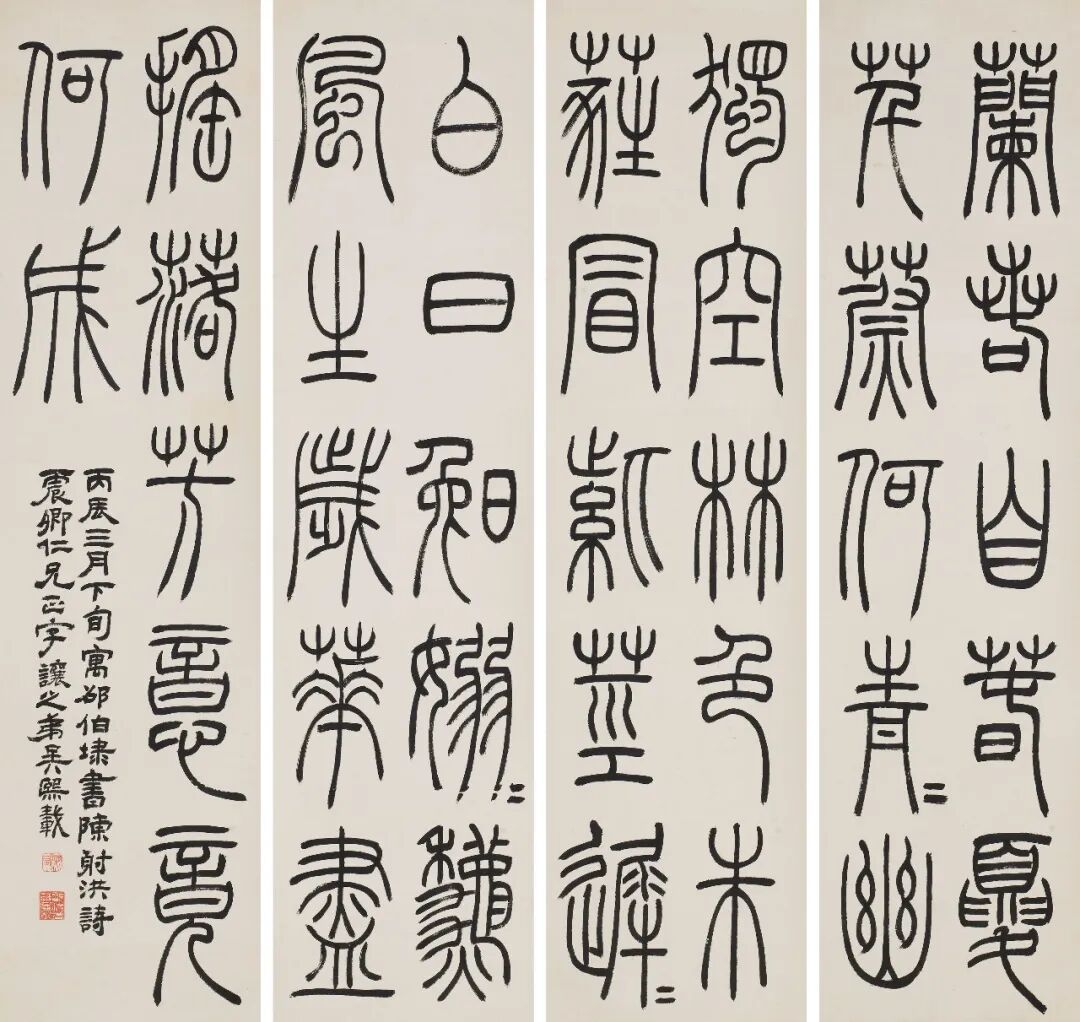 蘭若自春夏
芊蔚何青〻幽
獨空林色朱
蕤冒紫莖遲〻
白日晚嫋〻秋
風生歲華盡
搖落芳意竟
何成
丙辰三月下旬寓邵伯埭書陳射洪詩
震卿仁兄正字讓之弟吳熙載